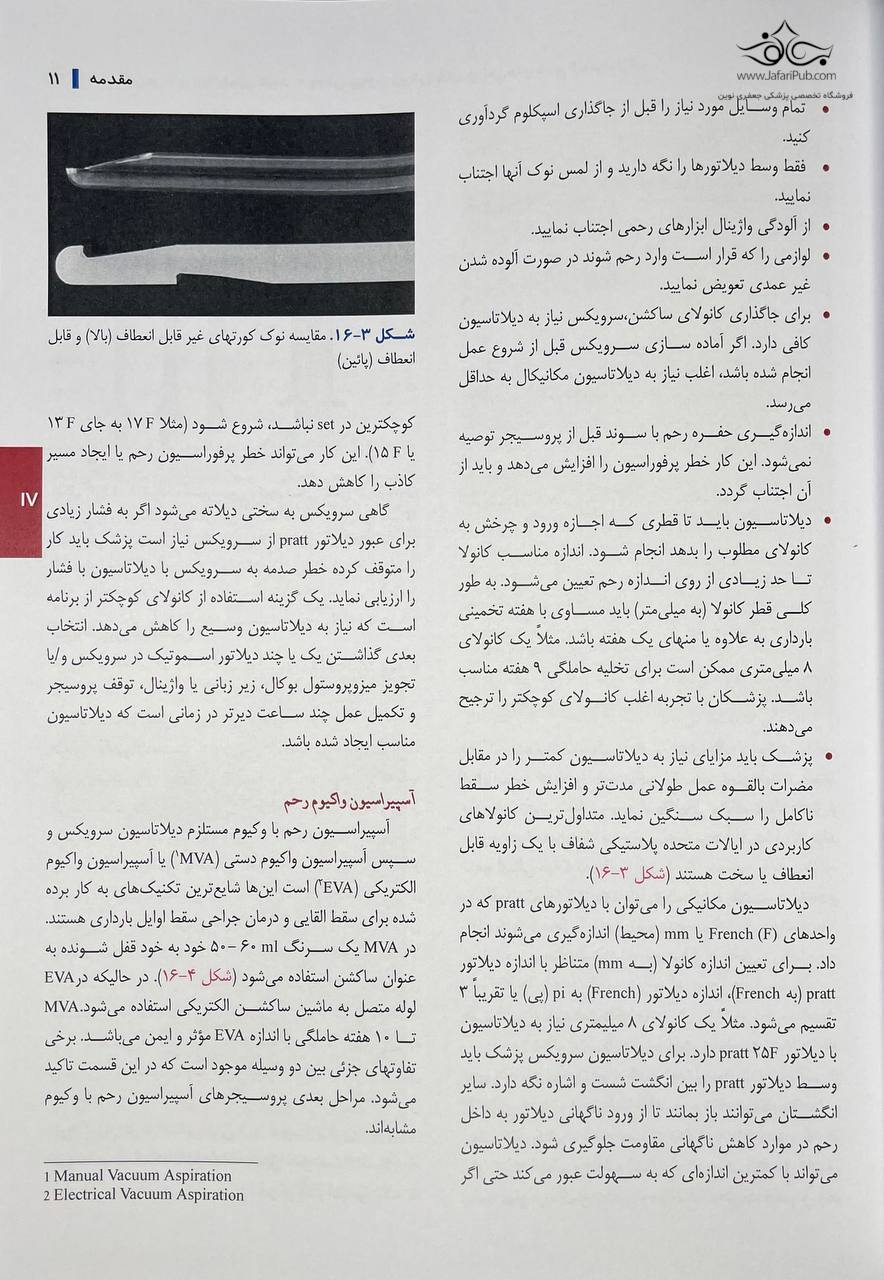 جعفری
www.JafariPub.com
فروشگاه تخصصی پزشکی جعفری نوین
مقدمه ۱۱
تمام وسایل مورد نیاز را قبل از جاگذاری اسپکلوم گردآوری
کنید.
فقط وسط دیلاتورها را نگه دارید و از لمس نوک آنها اجتناب
نمایید.
از آلودگی واژینال ابزارهای رحمی اجتناب نمایید.
لوازمی را که قرار است وارد رحم شوند در صورت آلوده شدن
غیر عمدی تعویض نمایید.
برای جاگذاری کانولای ساکشن،سرویکس نیاز به دیلاتاسیون
کافی دارد. اگر آماده سازی سرویکس قبل از شروع عمل
انجام شده باشد، اغلب نیاز به دیلاتاسیون مکانیکال به حداقل
می‌رسد.
اندازه‌گیری حفره رحم با سوند قبل از پروسیجر توصیه
نمی‌شود. این کار خطر پرفوراسیون را افزایش می‌دهد و باید از
آن اجتناب گردد.
دیلاتاسیون باید تا قطری که اجازه ورود و چرخش به
کانولای مطلوب را بدهد انجام شود. اندازه مناسب کانولا
تا حد زیادی از روی اندازه رحم تعیین می‌شود. به طور
کلی قطر کانولا (به میلی‌متر) باید مساوی با هفته تخمینی
بارداری به علاوه یا منهای یک هفته باشد. مثلاً یک کانولای
۸ میلی‌متری ممکن است برای تخلیه حاملگی ۹ هفته مناسب
باشد. پزشکان با تجربه اغلب کانولای کوچکتر را ترجیح
می‌دهند.
پزشک باید مزایای نیاز به دیلاتاسیون کمتر را در مقابل
مضرات بالقوه عمل طولانی مدت‌تر و افزایش خطر سقط
ناکامل را سبک سنگین نماید. متداول‌ترین کانولاهای
کاربردی در ایالات متحده پلاستیکی شفاف با یک زاویه قابل
انعطاف یا سخت هستند (شکل ۳-۱۶).
دیلاتاسیون مکانیکی را می‌توان با دیلاتورهای pratt که در
واحدهای French (F) یا mm (محیط) اندازه‌گیری می‌شوند انجام
داد. برای تعیین اندازه کانولا (به mm) متناظر با اندازه دیلاتور
pratt (به French)، اندازه دیلاتور (French) به pi (پی) یا تقریباً ۳
تقسیم می‌شود. مثلاً یک کانولای ۸ میلیمتری نیاز به دیلاتاسیون
با دیلاتور pratt ۲۵F دارد. برای دیلاتاسیون سرویکس پزشک باید
وسط دیلاتور pratt را بین انگشت شست و اشاره نگه دارد. سایر
انگشتان می‌توانند باز بمانند تا از ورود ناگهانی دیلاتور به داخل
رحم در موارد کاهش ناگهانی مقاومت جلوگیری شود. دیلاتاسیون
می‌تواند با کمترین اندازه‌ای که به سهولت عبور می‌کند حتی اگر
شکل ۳-۱۶. مقایسه نوک کورتهای غیر قابل انعطاف (بالا) و قابل
انعطاف (پائین)
کوچکترین در set نباشد، شروع شود (مثلا ۱۷ F به جای ۱۳ F
یا ۱۵ F). این کار می‌تواند خطر پرفوراسیون رحم یا ایجاد مسیر
کاذب را کاهش دهد.
گاهی سرویکس به سختی دیلاته می‌شود اگر به فشار زیادی
برای عبور دیلاتور pratt از سرویکس نیاز است پزشک باید کار
را متوقف کرده خطر صدمه به سرویکس با دیلاتاسیون با فشار
را ارزیابی نماید. یک گزینه استفاده از کانولای کوچکتر از برنامه
است که نیاز به دیلاتاسیون وسیع را کاهش می‌دهد. انتخاب
بعدی گذاشتن یک یا چند دیلاتور اسموتیک در سرویکس و/یا
تجویز میزوپروستول بوکال، زیر زبانی یا واژینال، توقف پروسیجر
و تکمیل عمل چند ساعت دیرتر در زمانی است که دیلاتاسیون
مناسب ایجاد شده باشد.
آسپیراسیون واکیوم رحم
آسپیراسیون رحم با وکیوم مستلزم دیلاتاسیون سرویکس و
سپس آسپیراسیون واکیوم دستی (MVA¹) یا آسپیراسیون واکیوم
الکتریکی (EVA²) است این‌ها شایع‌ترین تکنیک‌های به کار برده
شده برای سقط القایی و درمان جراحی سقط اوایل بارداری هستند.
در MVA یک سرنگ ۶۰ ml -۵۰ خود به خود قفل شونده به
عنوان ساکشن استفاده می‌شود (شکل ۴-۱۶). در حالیکه درEVA
لوله متصل به ماشین ساکشن الکتریکی استفاده می‌شود.MVA
تا ۱۰ هفته حاملگی با اندازه EVA مؤثر و ایمن می‌باشد. برخی
تفاوتهای جزئی بین دو وسیله موجود است که در این قسمت تاکید
می‌شود. مراحل بعدی پروسیجرهای آسپیراسیون رحم با وکیوم
مشابه‌اند.
1 Manual Vacuum Aspiration
2 Electrical Vacuum Aspiration
۱۷